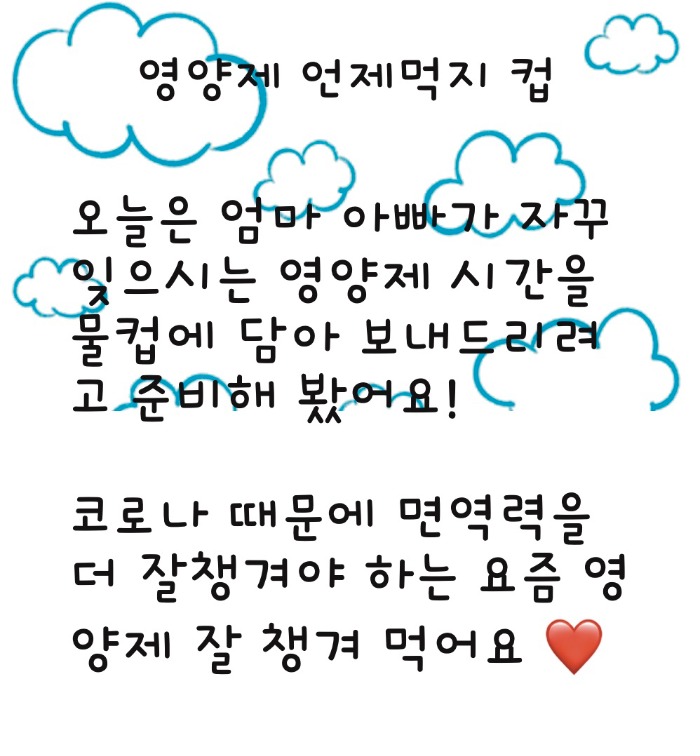 영양제 언제먹지 컵
오늘은 엄마 아빠가 자꾸
잊으시는 영양제 시간을
물컵에 담아 보내드리려
고 준비해 봤어요!
코로나 때문에 면역력을
더 잘챙겨야 하는 요즘 영
양제 잘 챙겨 먹어요 ❤️